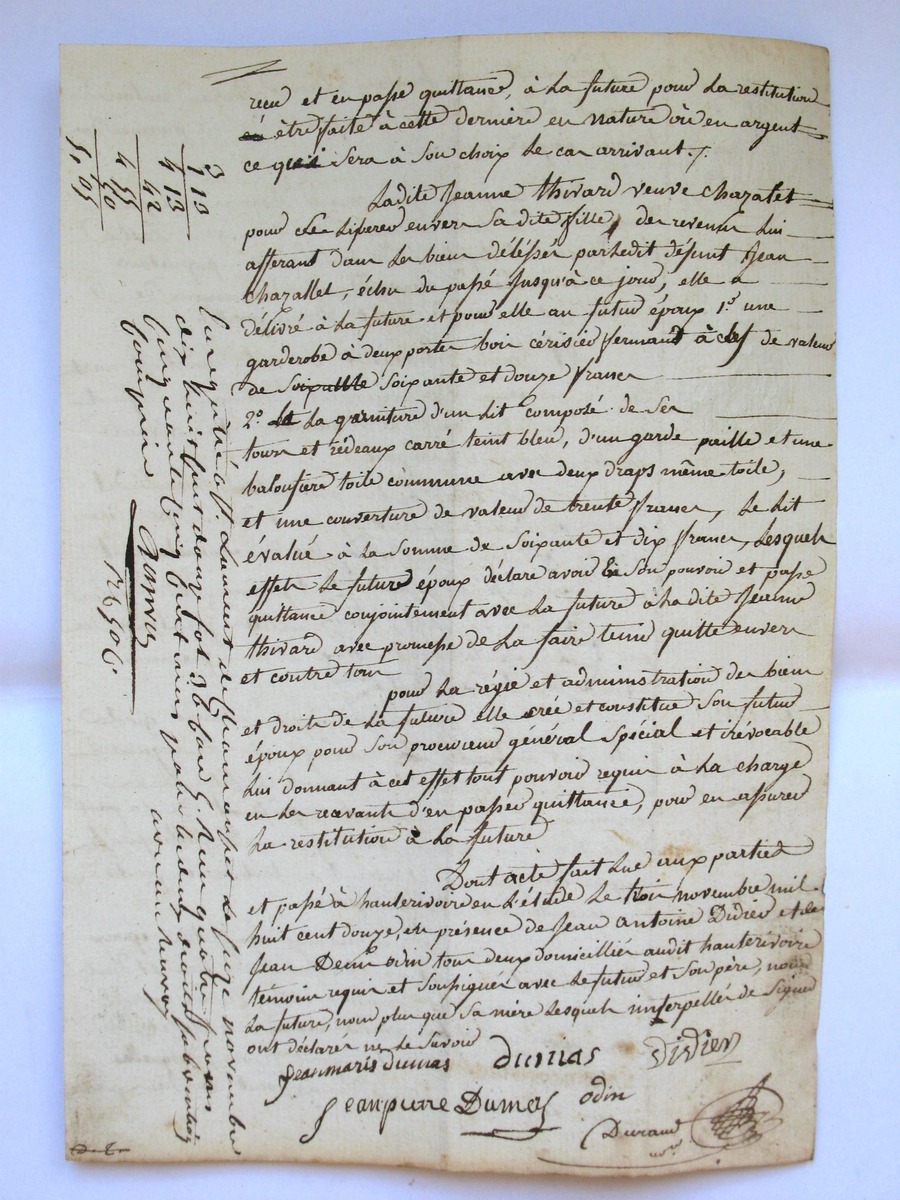 recu et en passe quittance, à la future pour la restitution
en être faite à cette derniere en nature ou en argent
ce qui sera à son choix le cas arrivant ./.
Ladite Jeanne thivard veuve chazalet
pour se liberer envers sa dite fille, des revenus lui
afferant dans les biens délessés par ledit défunt Jean
chazallet, échus du passé jusqu'à ce jour, elle a
délivré à la future et pour elle au futur époux 1.° une
garderobe à deux portes bois cérisier fermant à clef de valeur
de soixante et douze francs
2.° la garniture d'un lit composé de ses
tours et rédeaux carré teint bleu, d'un garde paille et une
baloufière toile commune avec deux draps même toile,
et une couverture de valeur de trente francs, le lit
évalué à la somme de soixante et dix francs, lesquels
effets le future époux déclare avoir en son pouvoir et passe
quittance conjointement avec la future à ladite Jeanne
thivard avec promesse de la faire tenir quitte envers
et contre tous
pour la régie et administration des biens
et droits de la future elle crée et constitue son futur
époux pour son procureur général spécial et irévocable
lui donnant à cet effet tout pouvoir requis à la charge
en les recevants d'en passer quittance, pour en assurer
la restitution à la future
Dont acte fait lue aux parties
et passé à hauterivoire en l'étude le trois novembre mil
huit cent douze, en présence de Jean Antoine Didier et de
Jean Denis odin tous deux domiciliés audit hauterivoire
témoins requis et soussignés avec le futur et son père, non
la future, non plus que sa mère lesquels interpellés de signer
ont déclarés ne le savoir
Jean marie dumas dumas Didier
Jean pierre Dumas odin
Durand
not.re
Enregistré à St. Laurent de chamousset le seize novembre
dix huit cent douze fol 36
cinquante cinq centimes pour
3
1 10
4 13
42
4 55
50
5, 05